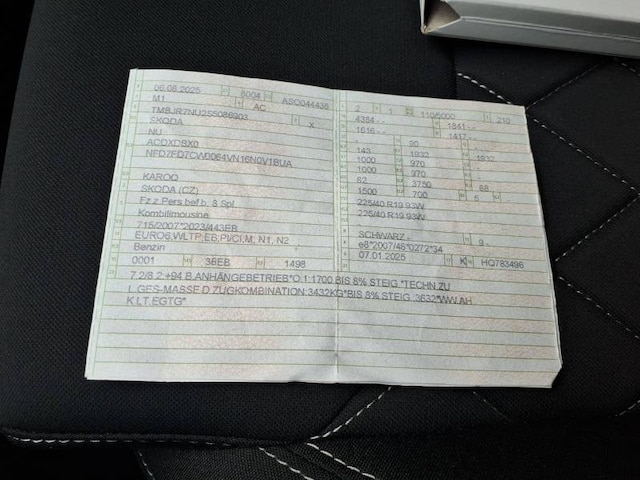 06.08.2025 8004 ASO044435
M1 AC
TMBJR7NU2S5086903 X
SKODA
NU
ACDXDBX0
NFD7FD7CW0064VN16N0V1BUA
KAROQ
SKODA (CZ)
Fz.z.Pers.bef.b. 8 Spl.
Kombilimousine
715/2007*2023/443EB
EURO6;WLTP;EB;PI/CI;M, N1, N2
Benzin
0001 36EB 1498
2 1 110/5000 210
4384 - - 1841 - -
1616 - - 1417 - -
90
143 1932 1932
1000 970
1000 970
82 3750 68
1500 700 5
225/40 R19 93W
225/40 R19 93W
SCHWARZ - 9
e8*2007/46*0272*34
07.01.2025 K HQ783496
7.2/8.2:+94 B.ANHÄNGEBETRIEB*O.1:1700 BIS 8% STEIG.*TECHN.ZU
L.GES-MASSE D.ZUGKOMBINATION:3432KG*BIS 8% STEIG.:3632*WW.AH
K LT.EGTG*